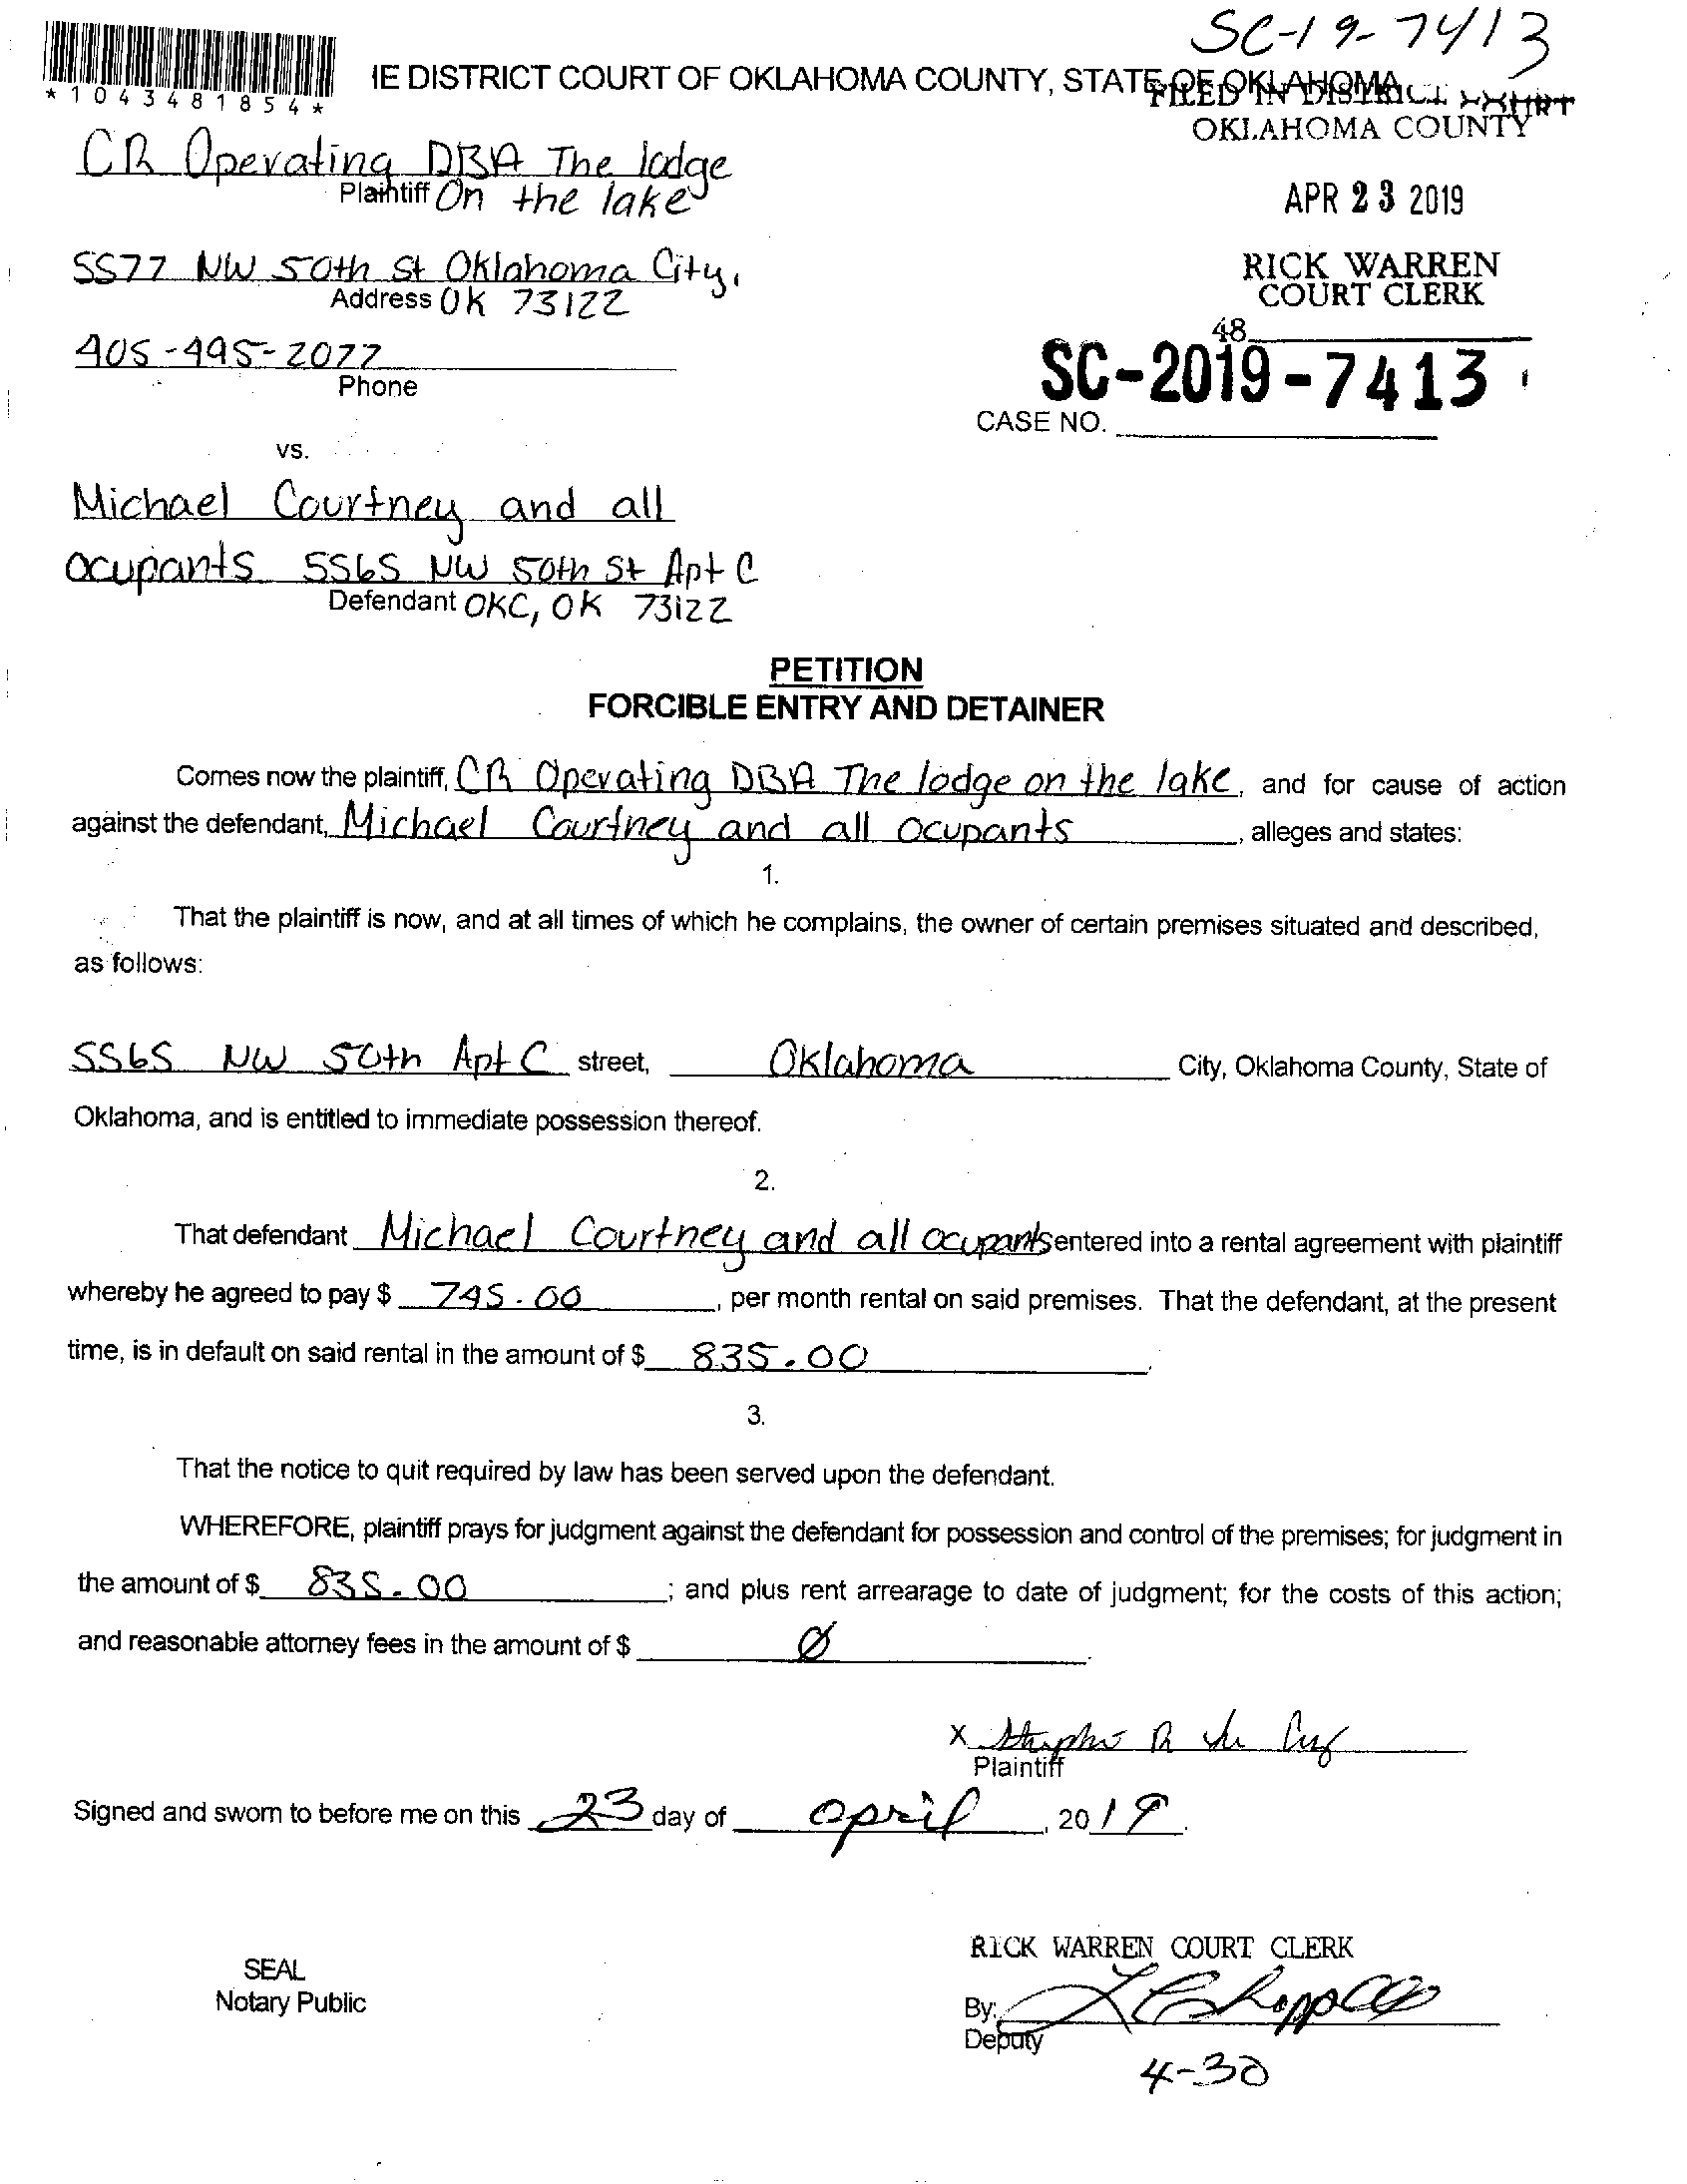 SC-19-7413
*1043481854*
IE DISTRICT COURT OF OKLAHOMA COUNTY, STATE OF OKLAHOMA
FILED IN DISTRICT COURT
OKLAHOMA COUNTY
CR Operating DBA The lodge
Plaintiff On the lake
APR 23 2019
5577 NW 50th St Oklahoma City,
Address OK 73122
RICK WARREN
COURT CLERK
405-495-2077
Phone
48
SC-2019-7413
CASE NO.
vs.
Michael Courtney and all
ocupants 5565 NW 50th St Apt C
Defendant OKC, OK 73122
PETITION
FORCIBLE ENTRY AND DETAINER
Comes now the plaintiff, CR Operating DBA The lodge on the lake, and for cause of action
against the defendant, Michael Courtney and all ocupants, alleges and states:
1.
That the plaintiff is now, and at all times of which he complains, the owner of certain premises situated and described,
as follows:
5565 NW 50th Apt C street, Oklahoma City, Oklahoma County, State of
Oklahoma, and is entitled to immediate possession thereof.
2.
That defendant Michael Courtney and all ocupants entered into a rental agreement with plaintiff
whereby he agreed to pay $ 745.00, per month rental on said premises. That the defendant, at the present
time, is in default on said rental in the amount of $ 835.00.
3.
That the notice to quit required by law has been served upon the defendant.
WHEREFORE, plaintiff prays for judgment against the defendant for possession and control of the premises; for judgment in
the amount of $ 835.00; and plus rent arrearage to date of judgment; for the costs of this action;
and reasonable attorney fees in the amount of $ Ø.
X
Plaintiff
Signed and sworn to before me on this 23 day of april, 2019.
RICK WARREN COURT CLERK
SEAL
Notary Public
By:
Deputy
4-30